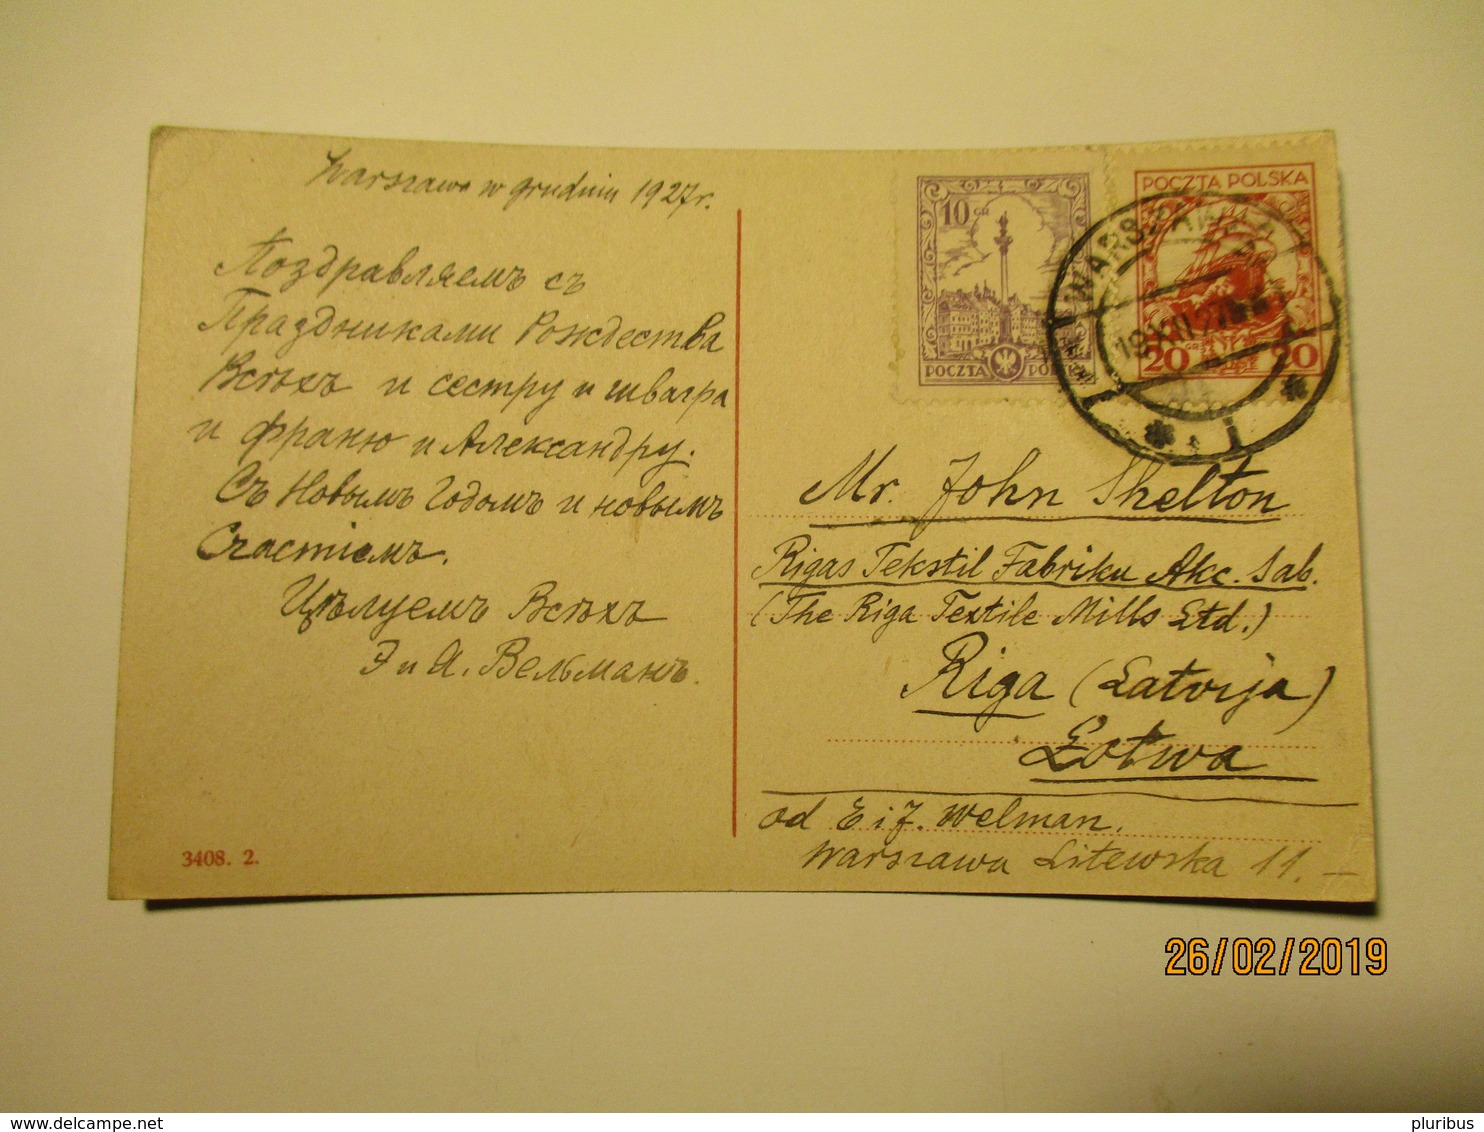 Warszawa w grudniu 1927r.
Поздравляемъ съ
Праздниками Рождества
Всѣхъ и сестру и швагра
и Франю и Александру.
Съ Новымъ Годомъ и новымъ
Счастіемъ.
Цѣлуемъ Всѣхъ
Э и А. Вельманъ.
3408. 2.
10 GR
POCZTA POLSKA
POCZTA POLSKA
20 GR 20
WARSZAWA
19 XII 27
Mr. John Shelton
Rigas Tekstil Fabriku Akc. Sab.
(The Riga Textile Mills Ltd.)
Riga (Latvija)
Łotwa
od E i J. Welman.
Warszawa Litewska 11.
26/02/2019
pluribus
www.delcampe.net